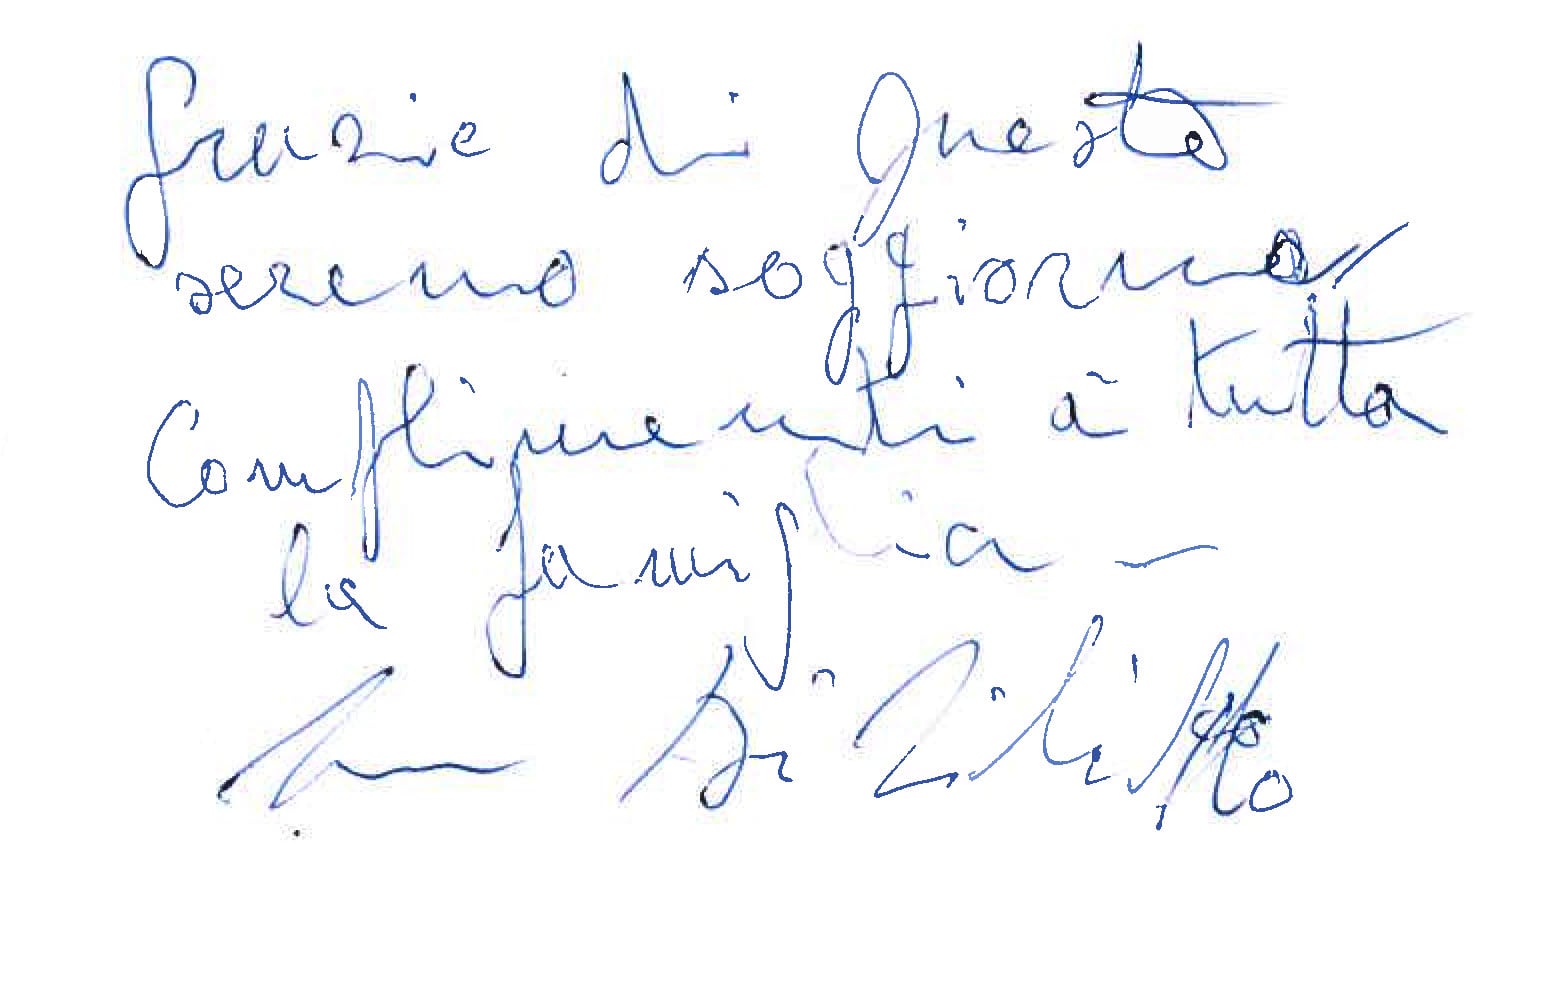 Grazie di Questo
sereno soggiorno
Complimenti a tutta
la famiglia -
Di